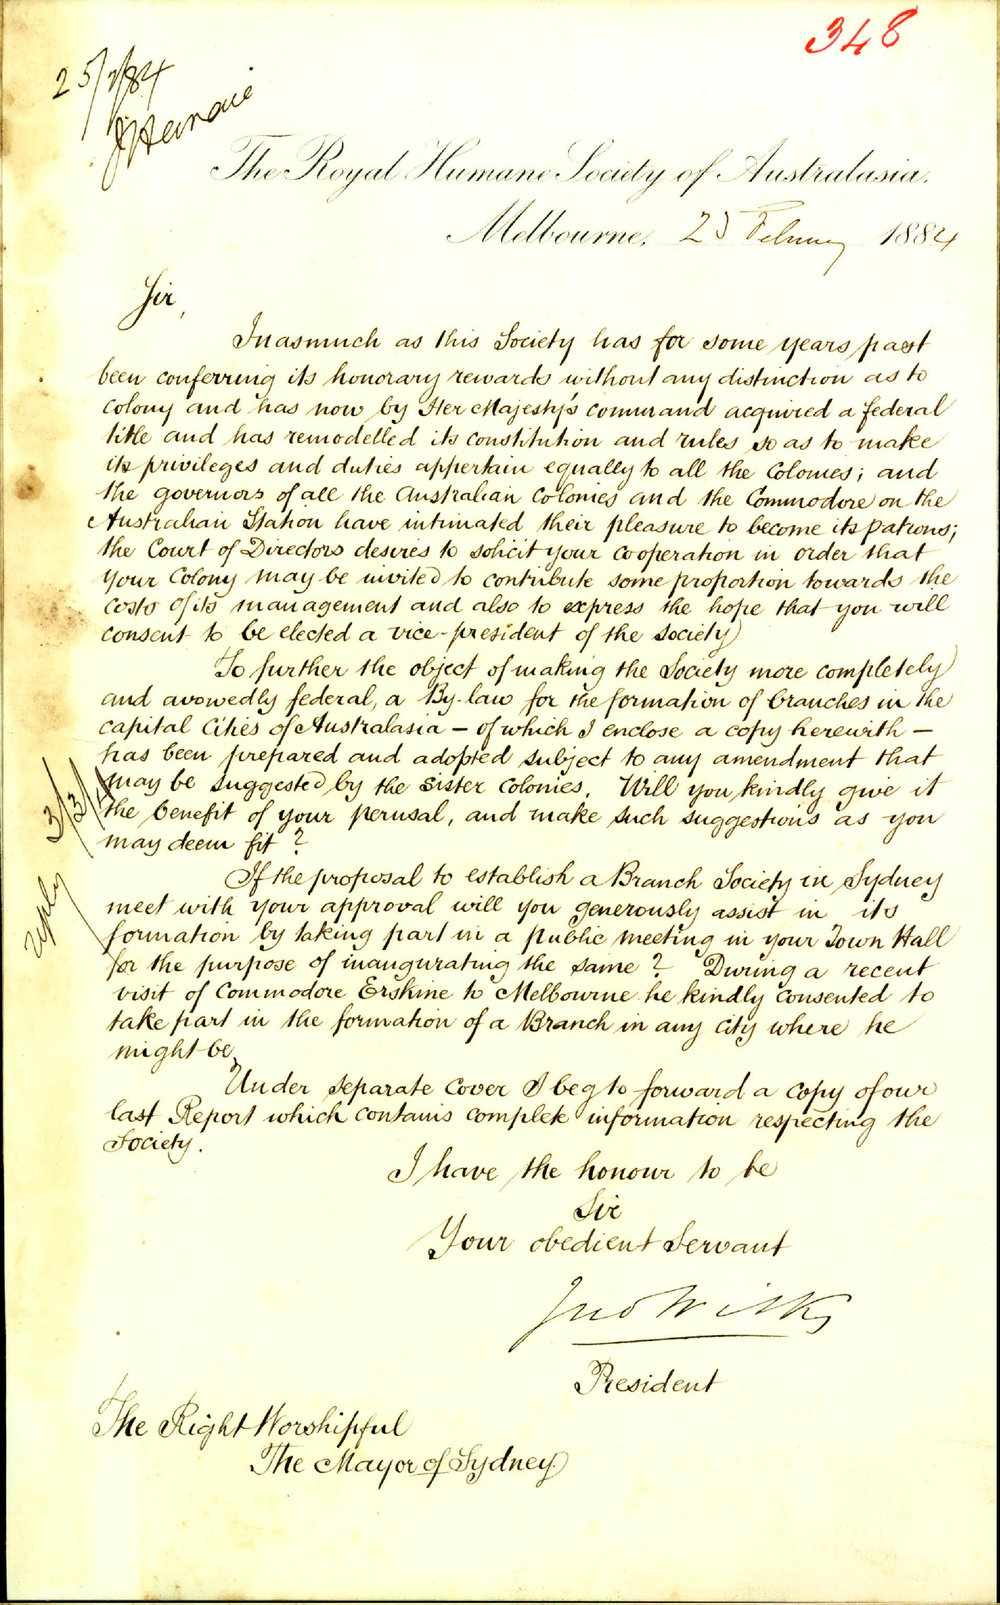 348
25/2/84
The Royal Humane Society of Australasia.
Melbourne, 23 February 1884
Sir,
Inasmuch as this Society has for some years past
been conferring its honorary rewards without any distinction as to
colony and has now by Her Majesty's command acquired a federal
title and has remodelled its constitution and rules so as to make
its privileges and duties appertain equally to all the Colonies; and
the governors of all the Australian Colonies and the Commodore on the
Australian Station have intimated their pleasure to become its patrons;
the Court of Directors desires to solicit your cooperation in order that
your Colony may be invited to contribute some proportion towards the
costs of its management and also to express the hope that you will
consent to be elected a vice-president of the society
To further the object of making the Society more completely
and avowedly federal, a By-law for the formation of branches in the
capital Cities of Australasia - of which I enclose a copy herewith -
has been prepared and adopted subject to any amendment that
may be suggested by the sister colonies. Will you kindly give it
the benefit of your perusal, and make such suggestions as you
may deem fit?
reply 3/3/84
If the proposal to establish a Branch Society in Sydney
meet with your approval will you generously assist in its
formation by taking part in a public meeting in your Town Hall
for the purpose of inaugurating the same? During a recent
visit of Commodore Erskine to Melbourne he kindly consented to
take part in the formation of a Branch in any city where he
might be.
Under separate cover I beg to forward a copy of our
last Report which contains complete information respecting the
Society.
I have the honour to be
Sir
Your obedient Servant
Jno Wilks
President
The Right Worshipful
The Mayor of Sydney